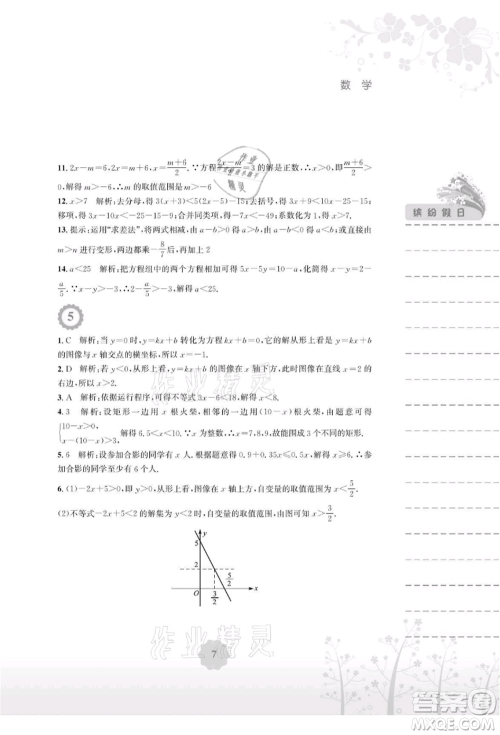 数 学
11. 2x-m=6,∴x=(m+6)/2. ∵方程(2x-m)/2=3的解是正数,∴(m+6)/2>0.
解得 m>-6,∴m的取值范围是 m>-6
12. x>7 解析:去分母,得 3(x+3)<5(2x-5)-15;去括号,得 3x+9<10x-25-15;
移项,得 3x-10x<-25-15-9;合并同类项,得-7x<-49;解得 x>7.
13. 提示:运用“求差法”,两式相减,由 a-b>0 得 a>b,由 a-b<0 得 a<b,由
m>n 进行变形,两边都乘-8/7,再加上 2
14. a<25 解析:把方程组中的两个方程相减得 5x-5y=10-a,化简得 x-y=2-
a/5. ∵x-y>-3,∴2-a/5>-3,∴a<25.
5
1. C 解析:当 y=0 时,y=kx+b 转化为方程 kx+b=0,从形上看是求 y=kx+b
的图像与 x 轴交点的横坐标,所以 x=-1.
2. D 解析:若 y<0,即 kx+b<0,从形上看,图像在 x 轴下方,也就是直线与 x 轴交点的
右边,所以 x>2.
3. A 解析:依据运行程序,可得不等式 3x-6<18,解得 x<8.
4. 3 解析:设矩形一边用 x 根火柴,另一边用(10-x)根火柴,由题意可得
{10-x>0, 解得 6.5<x<10,所以可以取 7,8,9,故能围成 3 个不同的矩形.
5. 6 解析:设参加合影的同学至少有 x 人,根据题意可得 0.9+0.35x≤0.5x,∴x≥6,参
加合影的同学至少有 6 人.
6. (1)-2x+5>0,从形上看,即图像在 x 轴上方,自变量的取值范围是 x<5/2.
(2)不等式-2x+5<2 的解集为如图所示,自变量的取值范围是 x>3/2.
y
5
2
5/2
O
3/2
x
7
缤纷假日
作业精灵
答案圈
MXQE.COM